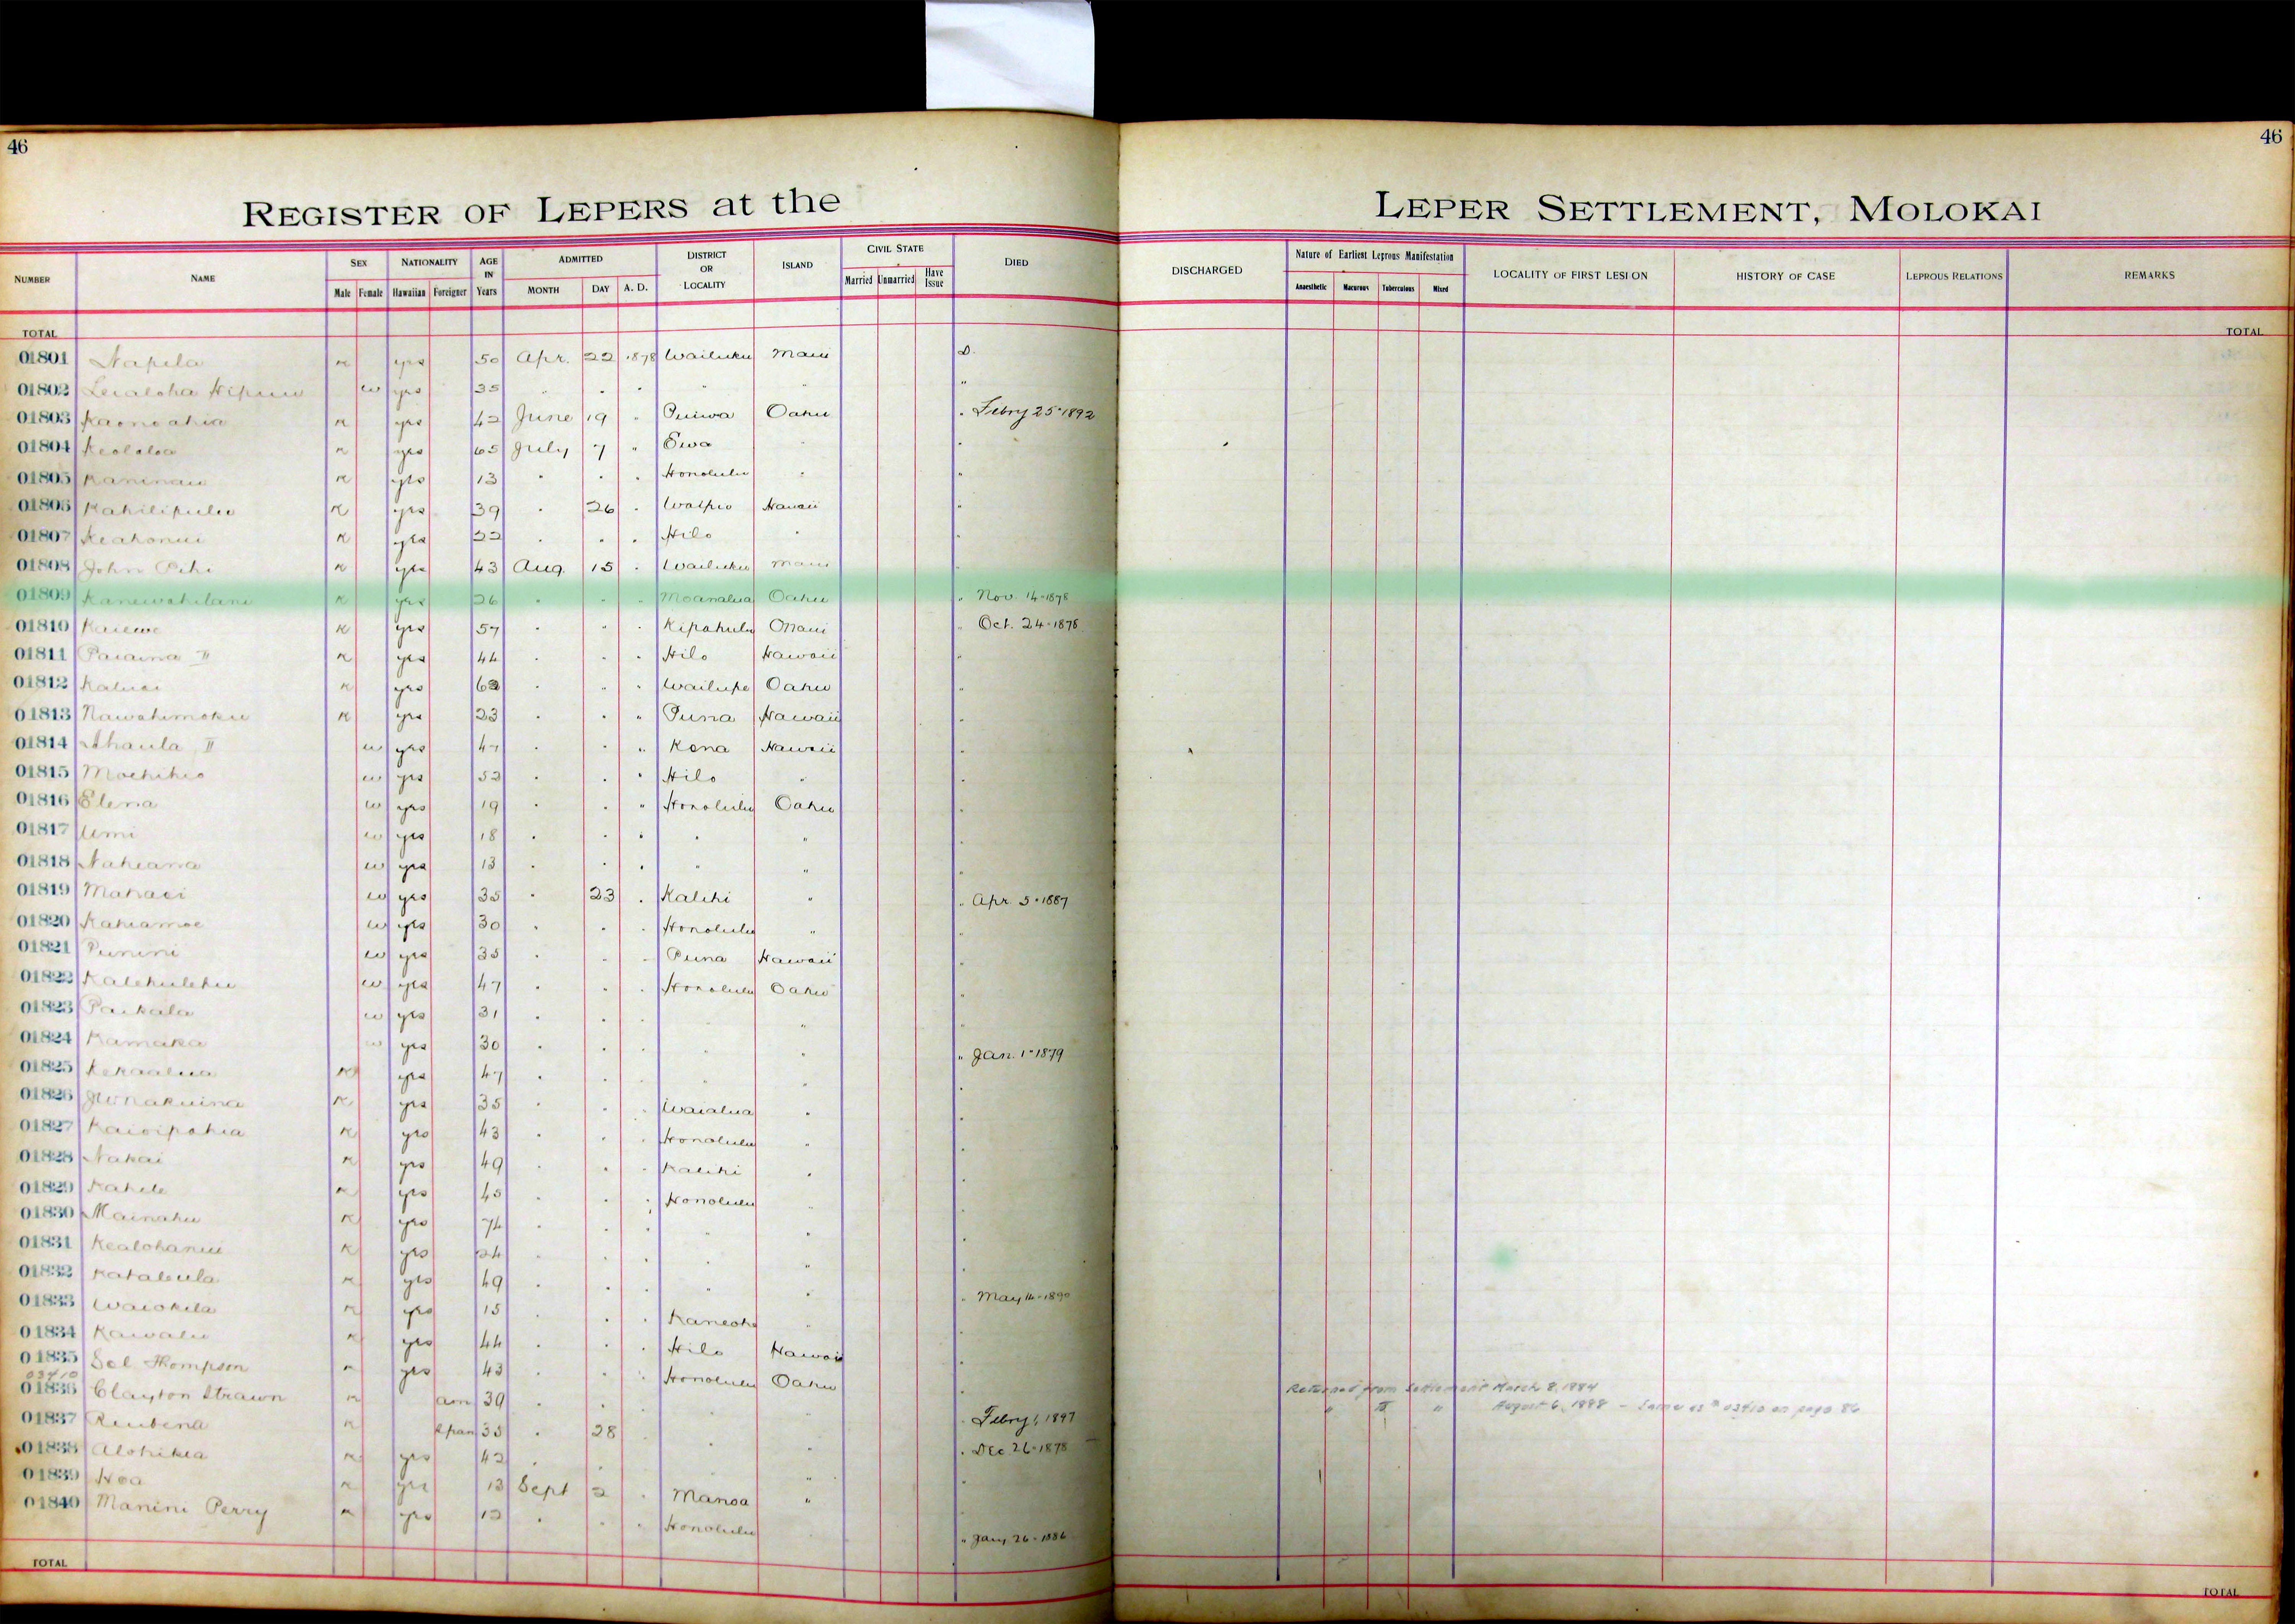 46
46
REGISTER OF LEPERS at the LEPER SETTLEMENT, MOLOKAI
NUMBER NAME SEX NATIONALITY AGE IN Years ADMITTED DISTRICT OR LOCALITY ISLAND CIVIL STATE DIED DISCHARGED Nature of Earliest Leprous Manifestation LOCALITY OF FIRST LESION HISTORY OF CASE LEPROUS RELATIONS REMARKS
Male Female Hawaiian Foreigner MONTH DAY A. D. Married Unmarried Have Issue Anaesthetic Macurous Tuberculous Mixed
TOTAL TOTAL
01801 Napela m yes 50 Apr. 22 1878 Wailuku Maui D.
01802 Lealoha w yes 35 " " " " " "
01803 Kaonoahia m yes 42 June 19 " Puiwa Oahu " Febry 25 1892
01804 Keololoa m yes 65 July 7 " Ewa " "
01805 Kaninau m yes 13 " " " Honolulu " "
01806 Kahilipulu m yes 39 " 26 " Waipio Hawaii "
01807 Keahonui m yes 22 " " " Hilo " "
01808 John Pihi m yes 43 Aug. 15 " Wailuku Maui "
01809 Kanewahilani m yes 26 " " " Moanalua Oahu " Nov. 14-1878
01810 Kaiewe m yes 57 " " " Kipahulu Maui " Oct. 24-1878
01811 Paiaina II m yes 44 " " " Hilo Hawaii "
01812 Kaluai m yes 62 " " " Wailupe Oahu "
01813 Nawahimoku m yes 23 " " " Puna Hawaii "
01814 Ahaula II w yes 47 " " " Kona Hawaii "
01815 Moehikio w yes 52 " " " Hilo " "
01816 Elena w yes 19 " " " Honolulu Oahu "
01817 Umi w yes 18 " " " " " "
01818 Nahiana w yes 13 " " " " " "
01819 Mahaei w yes 35 " 23 " Kalihi " " Apr. 5-1887
01820 Kahiamoe w yes 30 " " " Honolulu " "
01821 Punini w yes 35 " " " Puna Hawaii "
01822 Kalehulehu w yes 47 " " " Honolulu Oahu "
01823 Paikala w yes 31 " " " " "
01824 Kamaka w yes 30 " " " " " Jan. 1-1879
01825 Kekaalua m yes 47 " " " " " "
01826 m yes 35 " " " Waialua " "
01827 Kaioipohia m yes 43 " " " Honolulu " "
01828 Nakai m yes 49 " " " Kalihi " "
01829 Kahele m yes 45 " " " Honolulu " "
01830 Mainahu m yes 74 " " " " " "
01831 Kealohanui m yes 24 " " " " "
01832 Kahalaula m yes 49 " " " " " May 14-1890
01833 Waiohila m yes 15 " " " Kaneohe " "
01834 Kawalu m yes 44 " " " Hilo Hawaii "
01835 Sol Thompson m yes 43 " " " Honolulu Oahu "
03410
01836 Clayton Strawn m am 39 " " " " " Febry 1, 1897 Returned from Settlement March 8, 1884
" " " August 6, 1888 - Same as # 03410 on page 86
01837 Reubena m Span 35 " 28 " " " Dec 26-1878
01838 Alohikea m yes 42 " " " "
01839 Noa m yes 13 Sept 2 " Manoa "
01840 Manini Perry m yes 12 " " " Honolulu " Jany 26-1886
TOTAL TOTAL